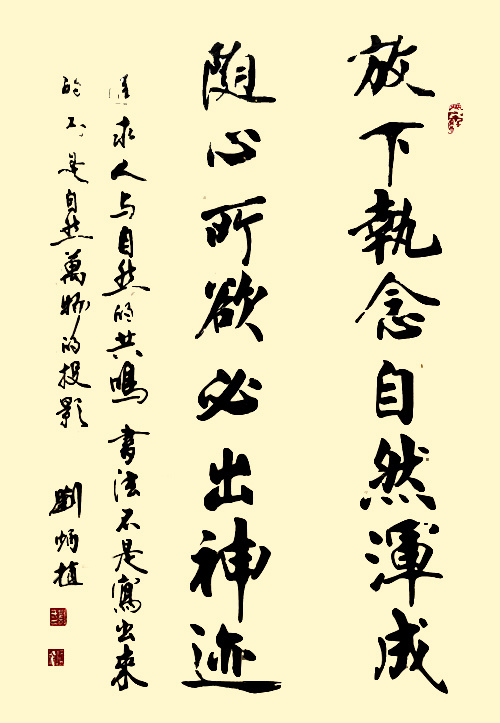 放下執念自然渾成
随心所欲必出神迹
求人与自然的共鳴書法不是寫出来
的而是自然萬物的投影
劉炳植